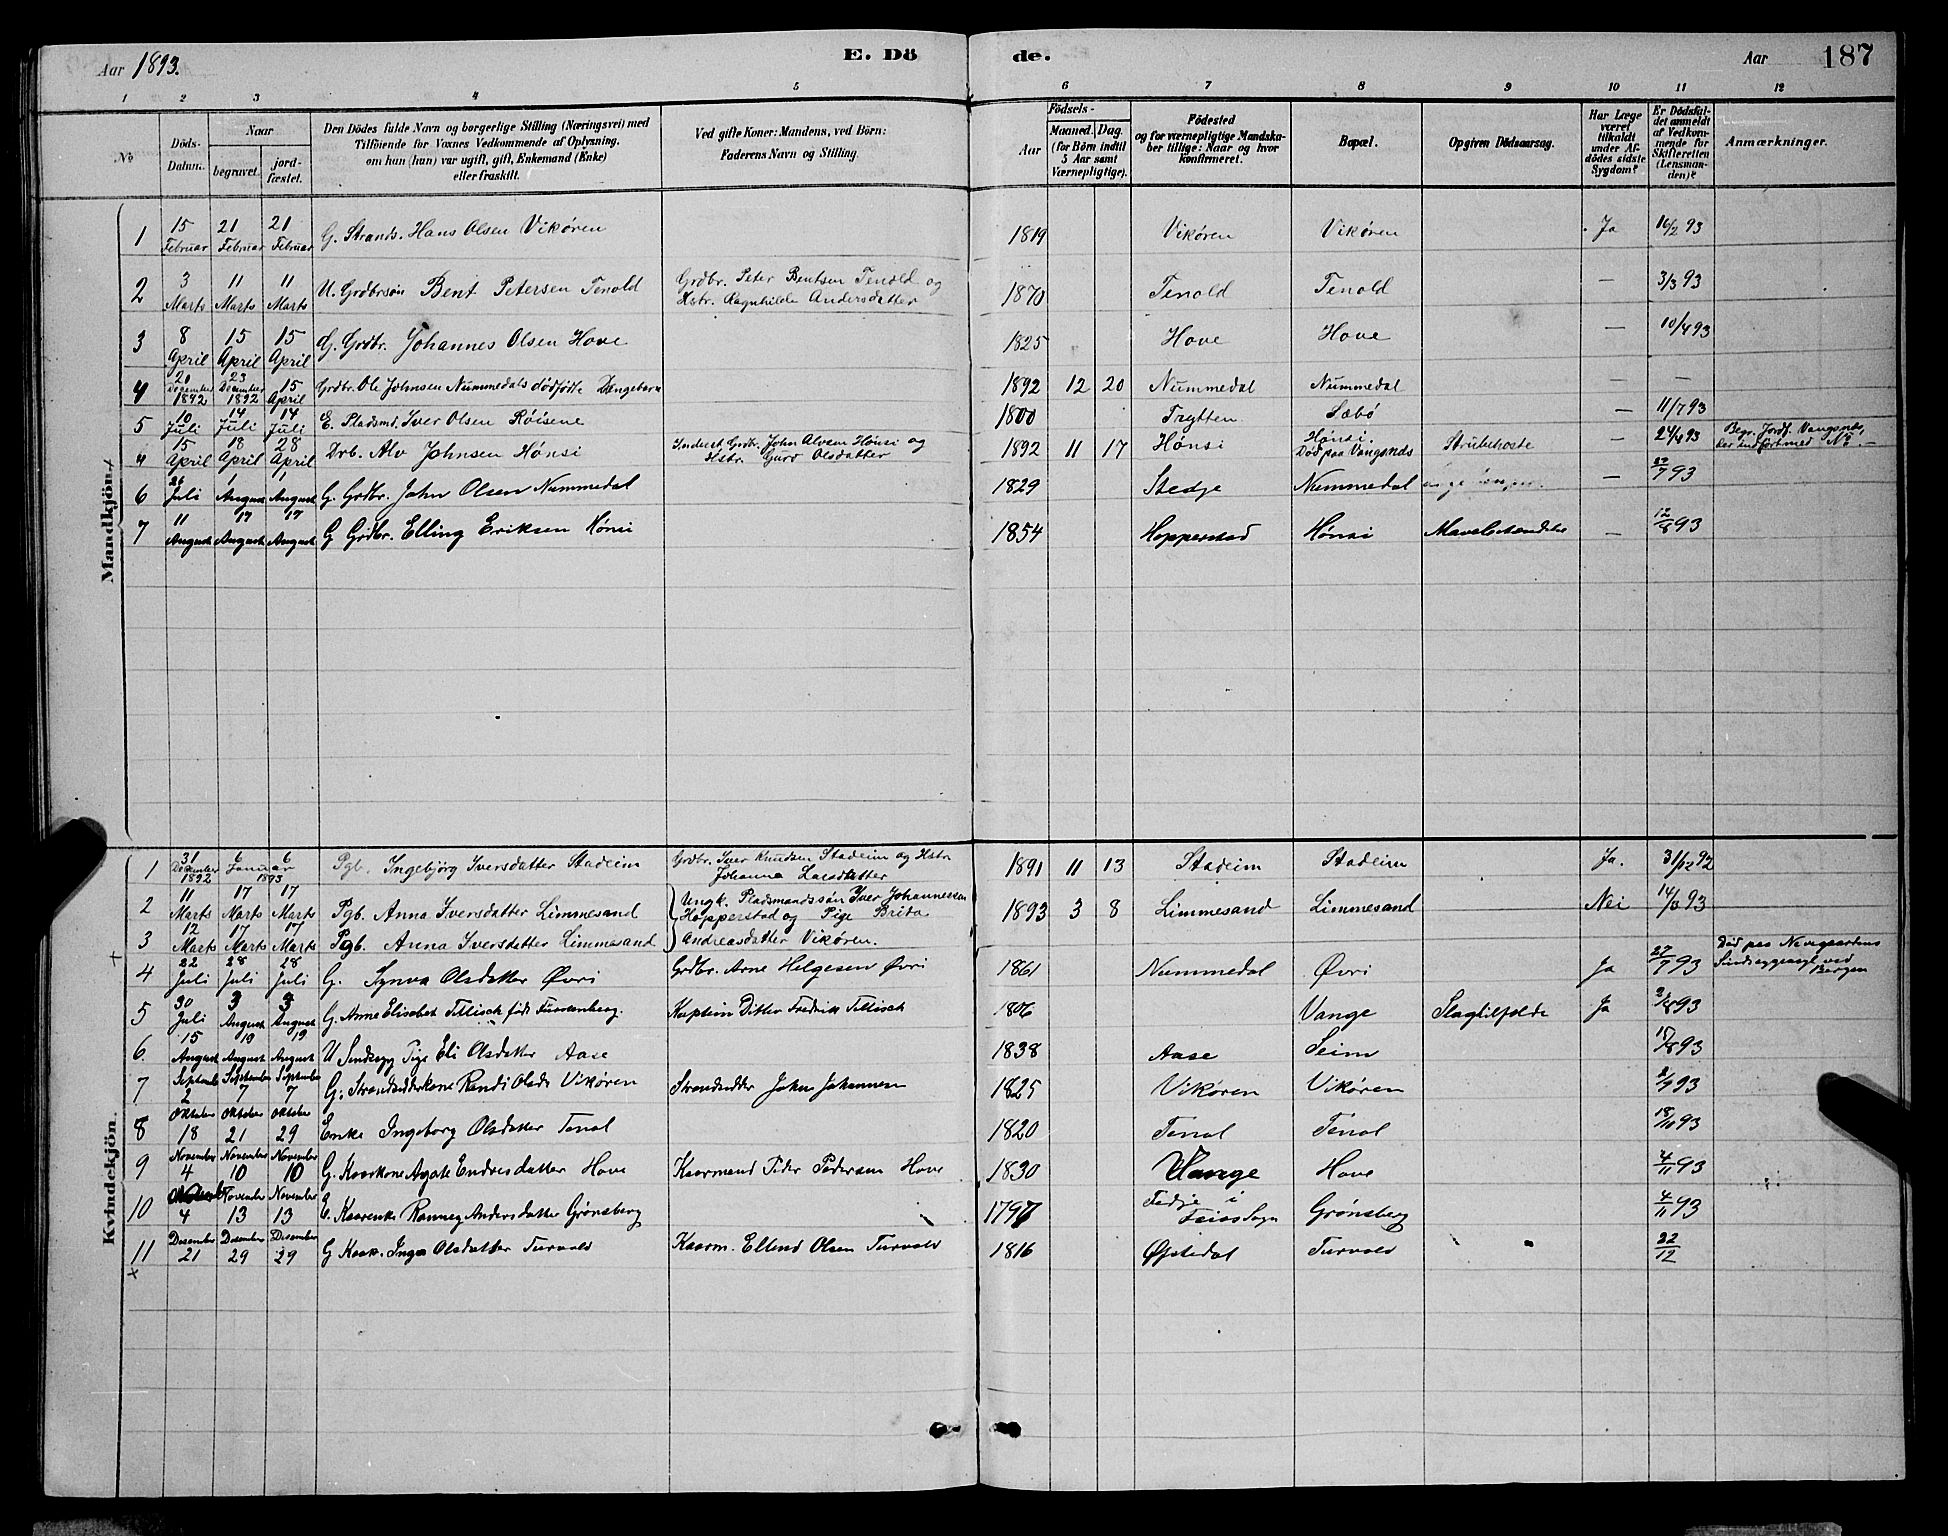 Aar 1893. E. Dö de. Aar 187
1 2 3 4 5 6 7 8 9 10 11 12
No
Döds-Datum.
Naar
begravet.
jordfæstet.
Den Dödes fulde Navn og borgerlige Stilling (Næringsvei) med
Tilföiende for Voxnes Vedkommende af Oplysning,
om hun (han) var ugift, gift, Enkemand (Enke)
eller fraskilt.
Ved gifte Koner: Mandens, ved Börn:
Faderens Navn og Stilling.
Födsels-
Aar
Maaned. Dag.
(for Börn indtil
5 Aar samt
Værnepligtige).
Födested
og for værnepligtige Mandska-
ber tillige: Naar og hvor
konfirmeret.
Bopæl.
Opgiven Dödsaarsag.
Har Læge
været
tilkaldt
under Af-
dödes sidste
Sygdom?
Er Dödsfal-
det anmeldt
af Vedkom-
mende for
Skifteretten
(Lensman-
den)?
Anmærkninger.
Mandkjön.
1 15 Februar 21 Februar 21 Februar G. Strands. Hans Olsen Vikøren 1819 Vikøren Vikøren Ja 16/2 93
2 3 Marts 11 Marts 11 Marts U. Grdbrsön Bent Petersen Tenold Grdbr. Peter Bentsen Tenold og
Hstr. Ragnhilde Andersdatter 1870 Tenold Tenold — 3/3 93
3 8 April 15 April 15 April G. Grdbr. Johannes Olsen Hove 1825 Hove Hove — 10/4 93
4 20 December 1892 23 December 1892 15 April Grdbr. Ole Johnsen Nummedals dödfödte Drengebarn 1892 12 20 Nummedal Nummedal — —
5 10 Juli 14 Juli 14 Juli E. Pladsmd. Iver Olsen Röisene 1800 Trytten Sæbö — 11/7 93
4 15 April 18 April 28 April Drb. Alv Johnsen Hønsi Inderst Grdbr. John Alvsen Hønsi og
Hstr. Guro Olsdatter 1892 11 17 Hønsi Hønsi.
Död paa Vangsnds Strubehoste — 24/4 93 Begr. Jordf. Vangsnæs,
her indført med No —
6 26 Juli 1 August 1 August G. Grdbr. John Olsen Nummedal 1829 Stedje Nummedal — 27/7 93
7 11 August 17 August 17 August G Grdbr. Elling Eriksen Hønsi 1854 Hopperstad Hønsi — 12/8 93
Kvindekjön.
1 31 December 1892 6 Januar 6 1893 Pgb. Ingebjörg Iversdatter Stadeim Grdbr. Iver Knudsen Stadeim og Hstr
Johanna Larsdatter 1891 11 13 Stadeim Stadeim Ja. 31/12 92
2 11 Marts 17 Marts 17 Marts Pgb. Anna Iversdatter Limmesand Ungk. Pladsmandssön Iver Johannessen
Hopperstad og Pige Brita 1893 3 8 Limmesand Limmesand Nei 14/3 93
3 12 Marts 17 Marts 17 Marts Pgb. Anna Iversdatter Limmesand Andreasdatter Vikøren.
4 22 Juli 28 Juli 28 Juli G. Synva Olsdatter Øvri Grdbr. Arne Helgesen Øvri 1861 Nummedal Øvri Ja 27/7 93 Död paa Nevegaardens
Sindsygeasyl ved
Bergen
5 30 Juli 3 August 3 August G. Anne Elisabet Tillisch født Fürstenberg. Kaptein Ditlev Fredrik Tillisch 1806 Vange Slagtilfælde Ja 2/8 93
6. 15 August 19 August 19 August U Sindssyg Pige Eli Olsdatter Aase 1838 Aase Seim 17/8 93
7 September 2 September 7 September 7 G. Strandsidderkone Randi Olsdr Vikøren Strandsidder John Johannesen 1825 Vikøren Vikøren 2/9 93
8 Oktober 18 Oktober 21 Oktober 29 Enke Ingeborg Olsdatter Tenol 1820 Tenol Tenol 18/10 93
9 November 4 November 10 November 10 G. Kaarkone Agate Endresdatter Hove Kaarmand Peder Pedersen Hove 1830 Vange Hove 4/11 93
10 4 November 13 November 13 E. Kaarenke Rannveg Andersdatter Grønsberg 1797 Fedje i
Feios Sogn Grønsberg 4/11 93
11 Desember 21 Desember 29 Desember 29 G Kaark. Inga Olsdatter Turvold Kaarm. Ellend Olsen Turvold 1816 Øpstedal Turvold 22/12